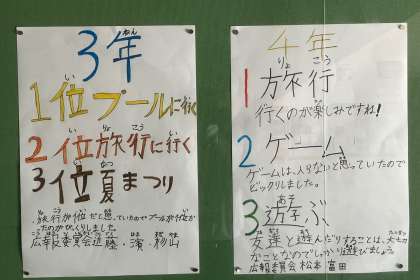 3年
1位プールに行く
2位旅行に行く
3位夏まつり
・旅行が1位だと思っていたのでプール行位が
たのがびっくりしました
広報委員会近藤・濱・杉山
4年
1旅行
行くのが楽しみですね!
2ゲーム
ゲームは、入らないと思っていたので
ビックリしました。
3遊ぶ
友達と遊んだりすることは、大せつ
なことなのでしっかり遊びましょう
広報委員会松本 富田